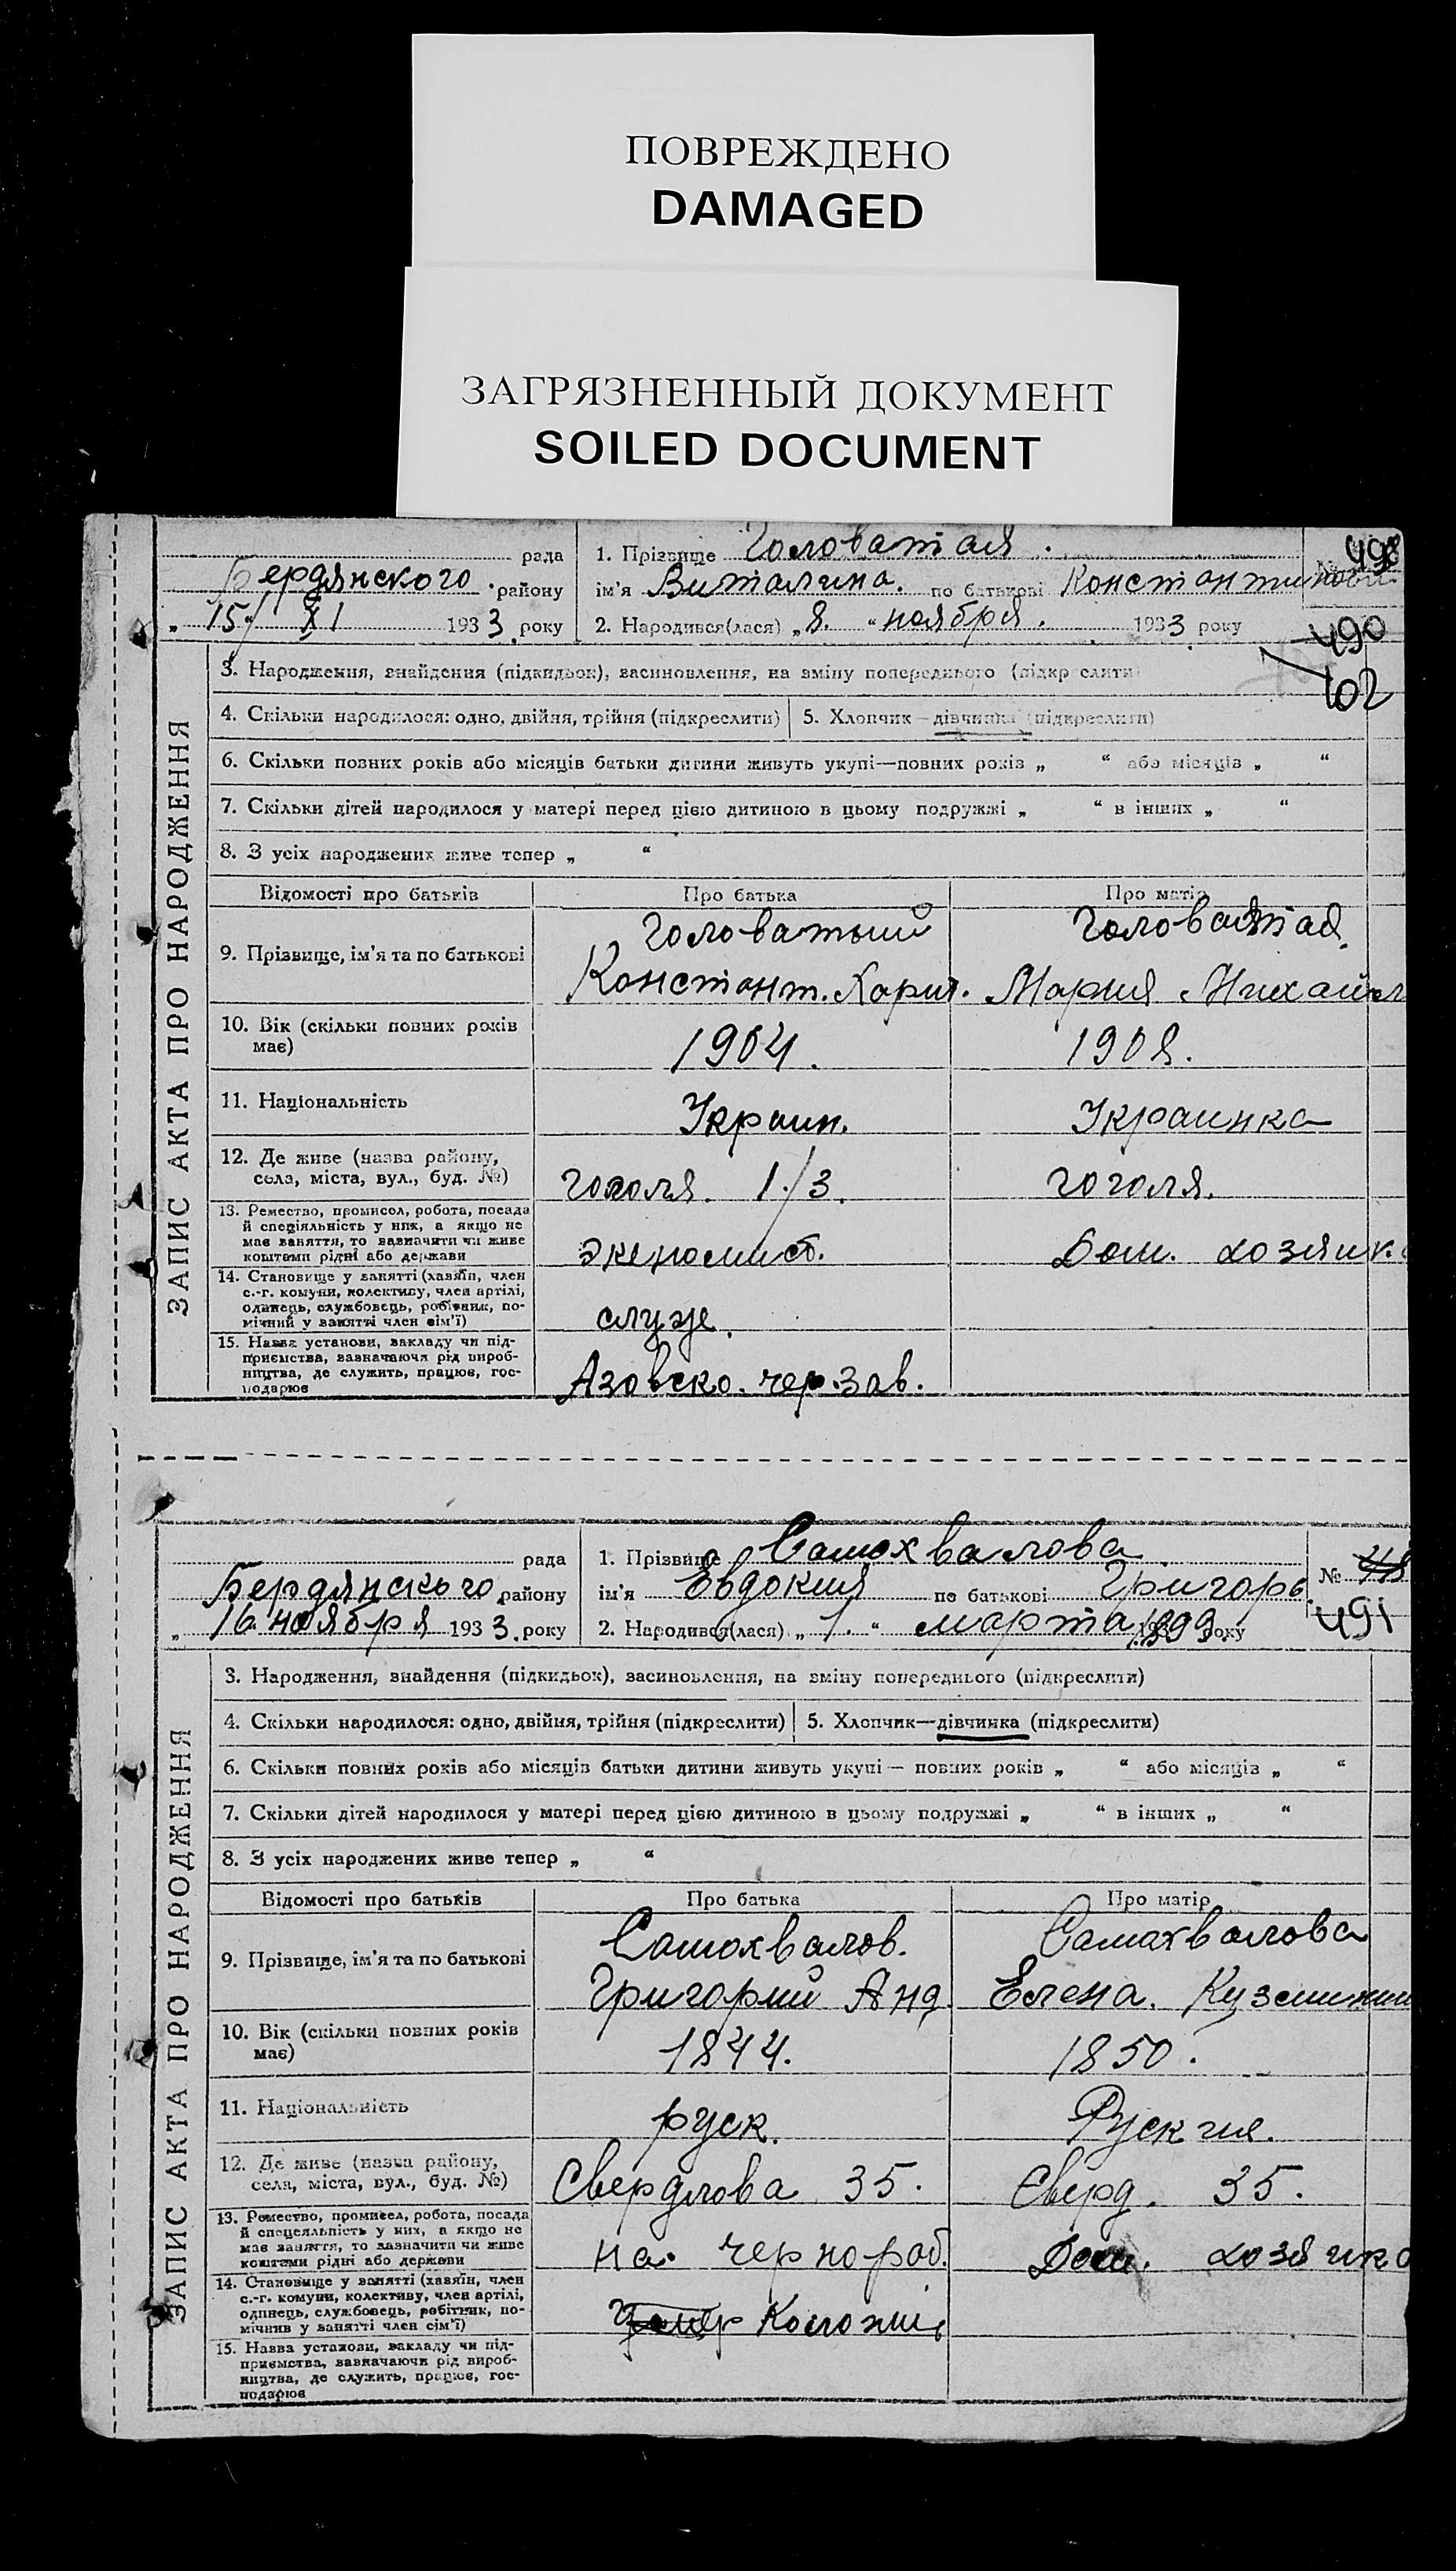 ПОВРЕЖДЕНО
DAMAGED
ЗАГРЯЗНЕННЫЙ ДОКУМЕНТ
SOILED DOCUMENT
ЗАПИС АКТА ПРО НАРОДЖЕННЯ
рада
Бердянского району
„ 15/ XI 1933 року
1. Прізвище Головатая.
ім'я Виталина. по батькові Константинови
2. Народився(лася) „8. “ ноября. 1933 року
№
490
102
3. Народження, знайдення (підкидьок), засиновлення, на зміну попереднього (підкреслити)
4. Скільки народилося: одно, двійня, трійня (підкреслити) 5. Хлопчик—дівчинка (підкреслити)
6. Скільки повних років або місяців батьки дитини живуть укупі—повних років „ “ або місяців „ “
7. Скільки дітей народилося у матері перед цією дитиною в цьому подружжі „ “ в інших „ “
8. З усіх народжених живе тепер „ “
Відомості про батьків Про батька Про матір
9. Прізвище, ім'я та по батькові
Головатый Головатая
Констант. Харит. Мария Михайл
10. Вік (скільки повних років має) 1904. 1908.
11. Національність Украин. Украинка
12. Де живе (назва району, села, міста, вул., буд. №) Гоголя. 1/3. Гоголя.
13. Ремество, промисол, робота, посада й спеціяльність у них, а якщо не має заняття, то зазначити чи живе коштами рідні або держави
экономист. Дом. хозяйк.
14. Становище у занятті (хазяїн, член с.-г. комуни, колективу, член артілі, одинець, службовець, робітник, помічний у занятті член сім'ї)
служ.
15. Назва установи, закладу чи підприємства, зазначаючи рід виробництва, де служить, працює, господарює
Азовско. чер. зав.
ЗАПИС АКТА ПРО НАРОДЖЕННЯ
рада
Бердянського району
„ 16 ноября 1933. року
1. Прізвище Самохвалова
ім'я Евдокия по батькові Григорь
2. Народився(лася) „ 1. “ марта 1899. року
№
491
3. Народження, знайдення (підкидьок), засиновлення, на зміну попереднього (підкреслити)
4. Скільки народилося: одно, двійня, трійня (підкреслити) 5. Хлопчик—дівчинка (підкреслити)
6. Скільки повних років або місяців батьки дитини живуть укупі — повних років „ “ або місяців „ “
7. Скільки дітей народилося у матері перед цією дитиною в цьому подружжі „ “ в інших „ “
8. З усіх народжених живе тепер „ “
Відомості про батьків Про батька Про матір
9. Прізвище, ім'я та по батькові
Самохвалов. Самахвалова
Григорий Анд Елена. Кузминин
10. Вік (скільки повних років має) 1844. 1850.
11. Національність руск. Руская.
12. Де живе (назва району, села, міста, вул., буд. №) Свердлова 35. Сверд. 35.
13. Ремество, промисел, робота, посада й спецеяльність у них, а якщо не має заняття, то зазначити чи живе коштами рідні або держави
на. чернораб. Дом. хозяйка
14. Становище у занятті (хазяїн, член с.-г. комуни, колективу, член артілі, одинець, службовець, робітник, помічнив у занятті член сім'ї)
15. Назва установи, закладу чи підприємства, зазначаючи рід виробництва, де служить, працює, господарює